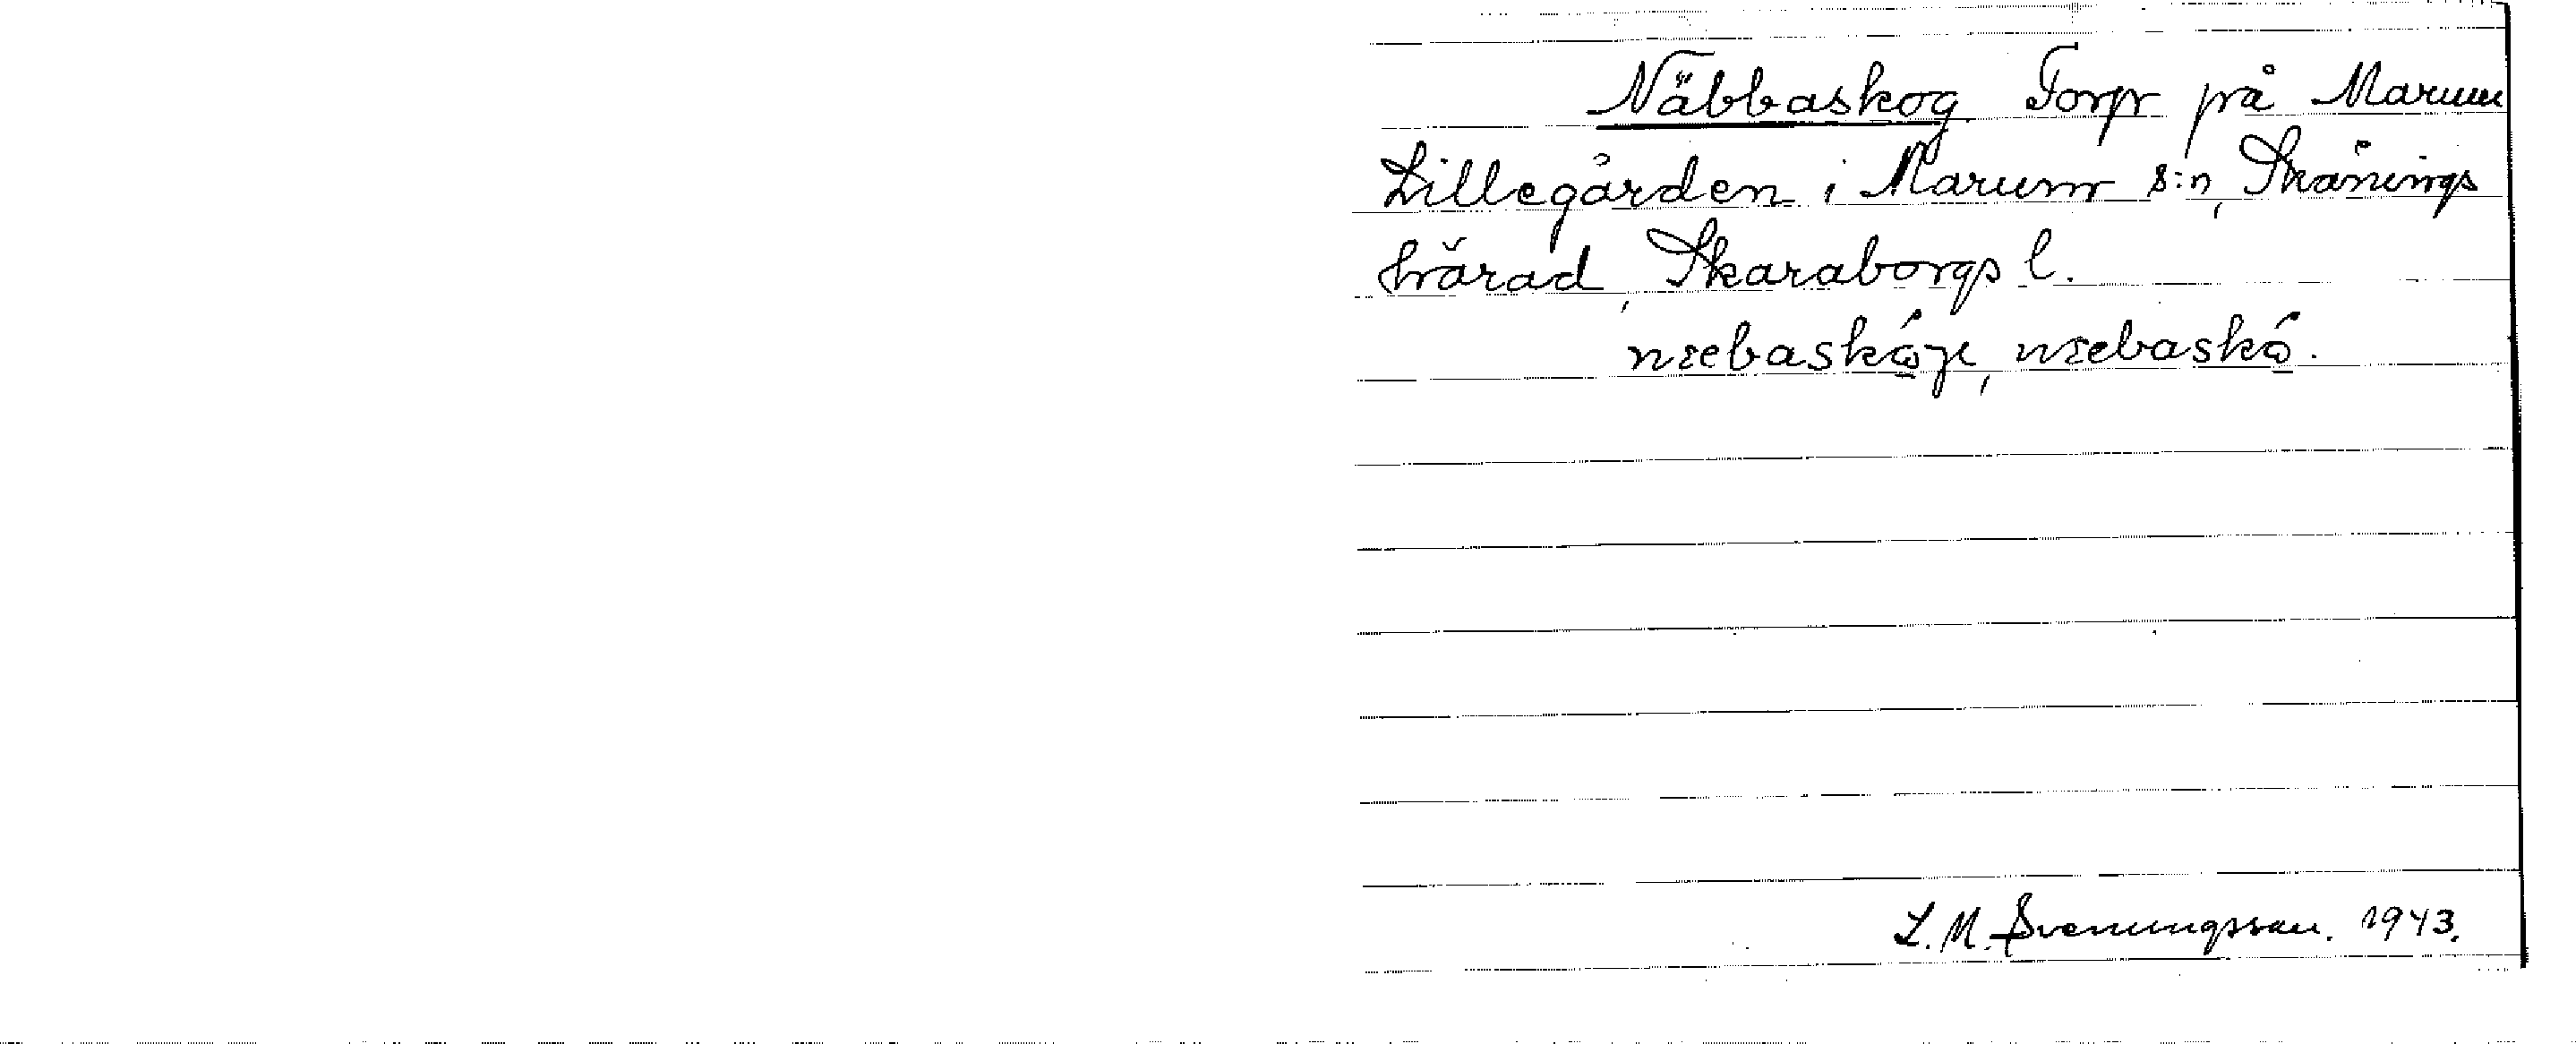 Näbbaskog Torp på Marum
Lillegården i Marum s:n, Skånings
härad, Skaraborgs l.
L. M. Svenungsson. 1943.